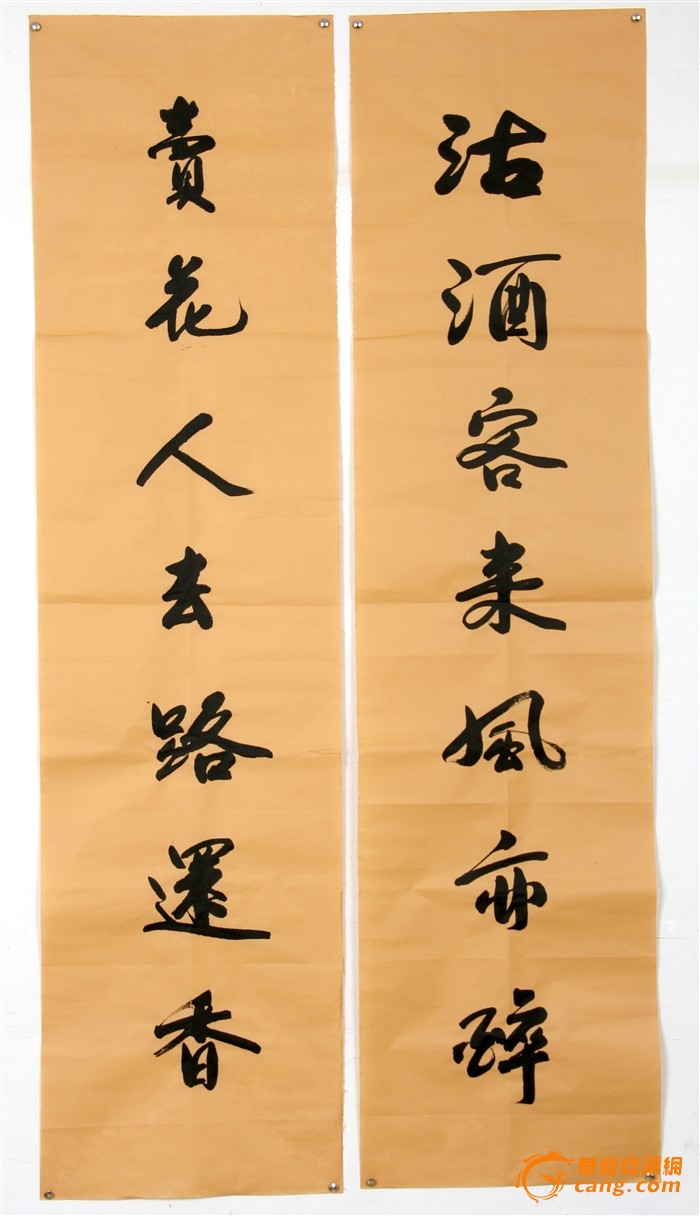 沽酒客来風亦醉
賣花人去路還香
華夏收藏網
cang.com